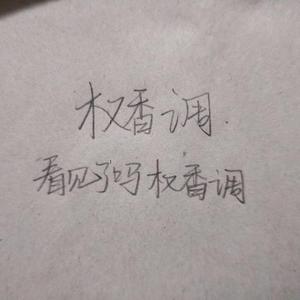 权香调.
看见了吗权香调